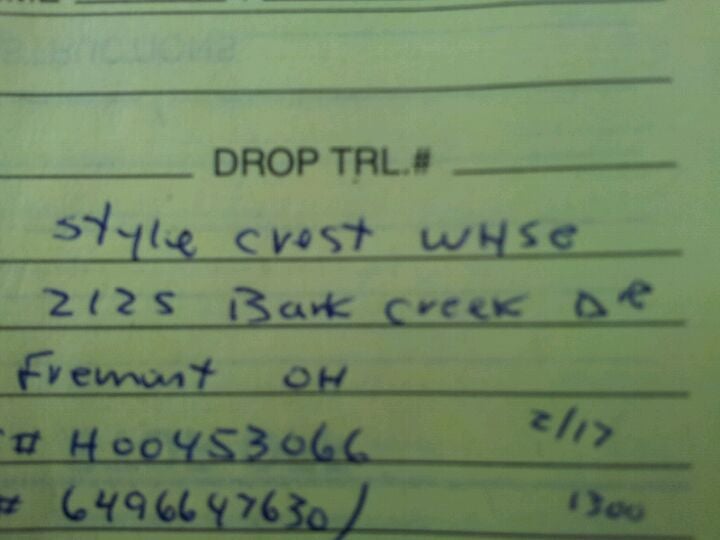 DROP TRL.#
Style crest WHSE
2125 Bark Creek DR
Fremont OH
# H00453066 2/17
# 6496647630/ 1300